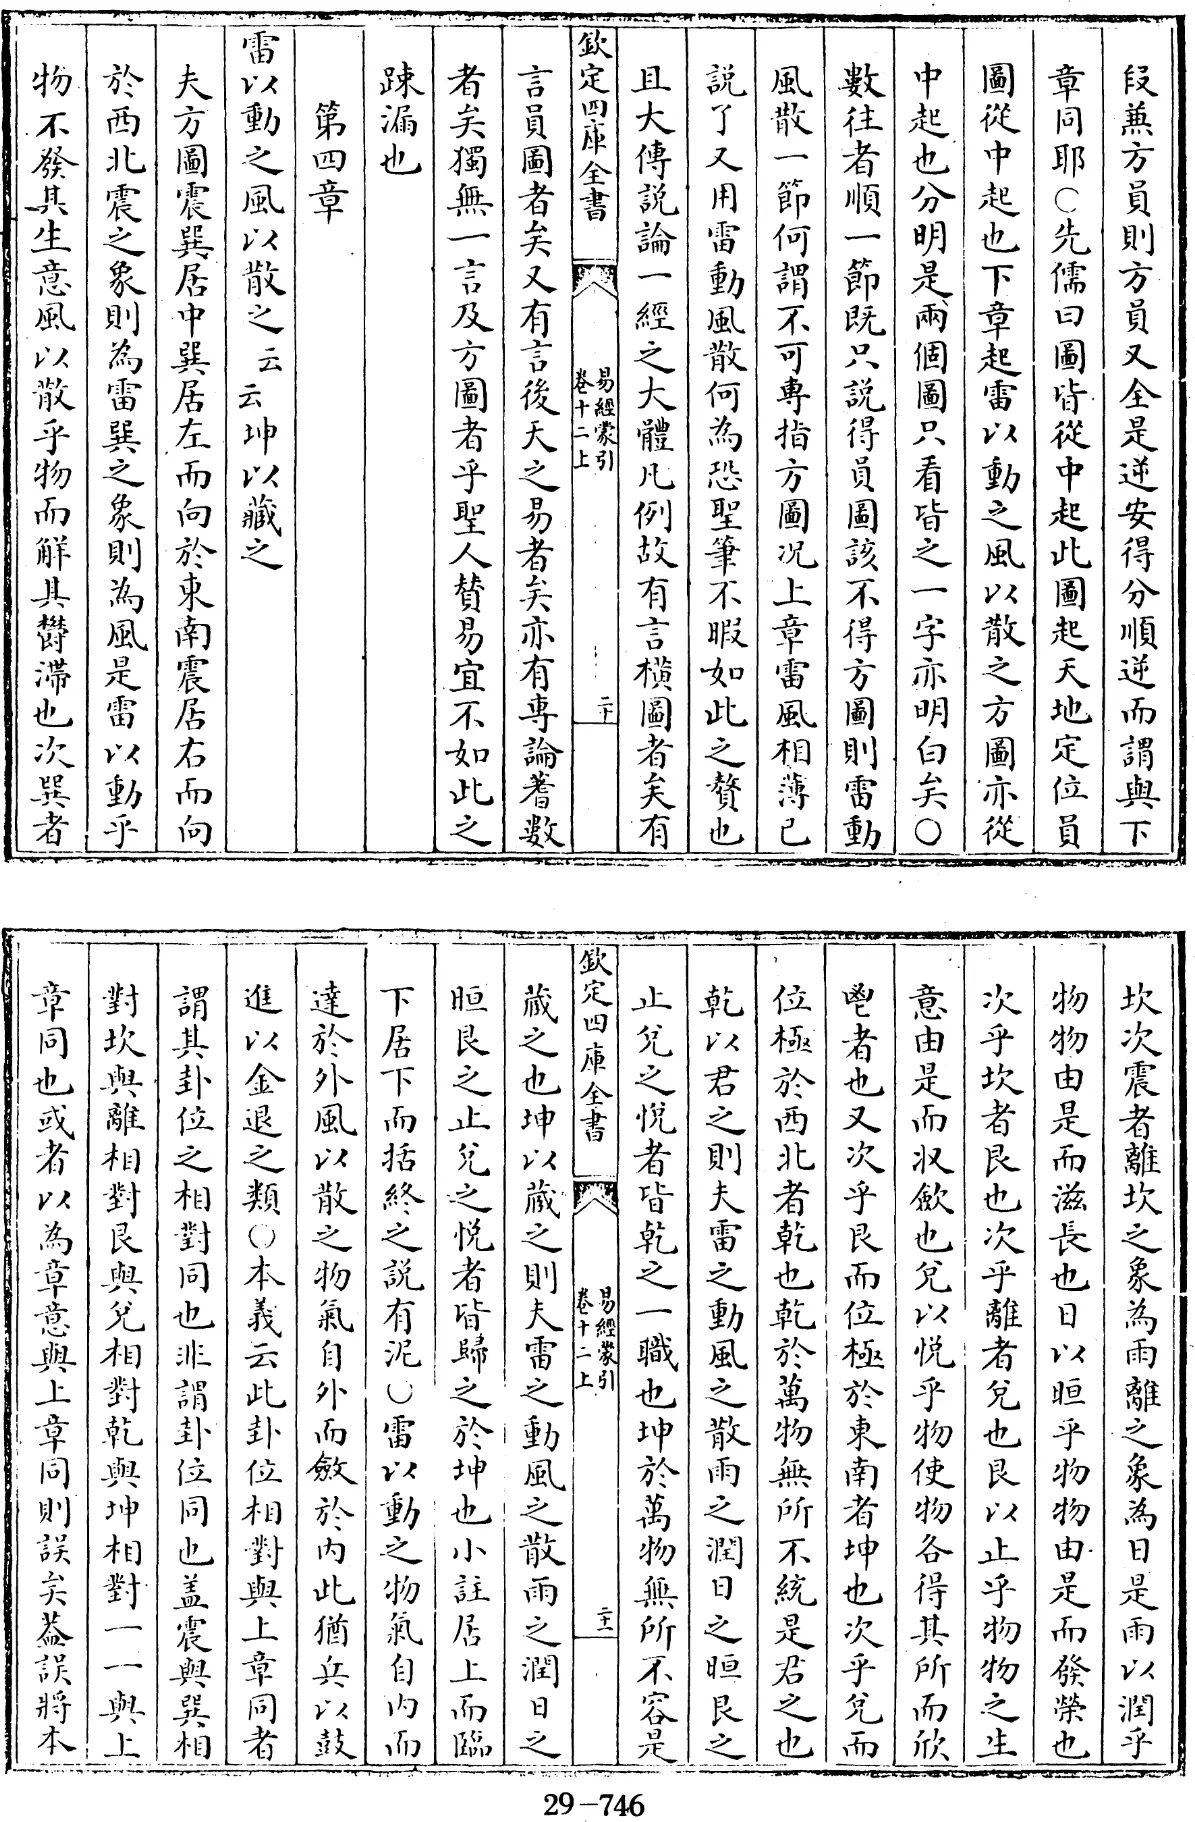 段兼方員則方員又全是逆安得分順逆而謂與下
章同耶○先儒曰圖皆從中起此圖起天地定位員
圖從中起也下章起雷以動之風以散之方圖亦從
中起也分明是兩個圖只看皆之一字亦明白矣○
數往者順一節既只說得員圖該不得方圖則雷動
風散一節何謂不可專指方圖况上章雷風相薄已
說了又用雷動風散何為恐聖筆不暇如此之贅也
且大傳説論一經之大體凡例故有言橫圖者矣有
欽定四庫全書
易經蒙引
卷十二上
二十
言員圖者矣又有言後天之易者矣亦有專論蓍數
者矣獨無一言及方圖者乎聖人賛易宜不如此之
踈漏也
第四章
雷以動之風以散之云云坤以藏之
夫方圖震巽居中巽居左而向於東南震居右而向
於西北震之象則為雷巽之象則為風是雷以動乎
物不發其生意風以散乎物而解其欝滯也次巽者
坎次震者離坎之象為雨離之象為日是雨以潤乎
物物由是而滋長也日以晅乎物物由是而發榮也
次乎坎者艮也次乎離者兌也艮以止乎物物之生
意由是而収歛也兌以悦乎物使物各得其所而欣
鬯者也又次乎艮而位極於東南者坤也次乎兌而
位極於西北者乾也乾於萬物無所不統是君之也
乾以君之則夫雷之動風之散雨之潤日之晅艮之
止兌之悦者皆乾之一職也坤於萬物無所不容是
欽定四庫全書
易經蒙引
卷十二上
二十一
藏之也坤以藏之則夫雷之動風之散雨之潤日之
晅艮之止兌之悦者皆歸之於坤也小註居上而臨
下居下而括終之説有泥○雷以動之物氣自内而
達於外風以散之物氣自外而斂於内此猶兵以鼓
進以金退之類○本義云此卦位相對與上章同者
謂其卦位之相對同也非謂卦位同也盖震與巽相
對坎與離相對艮與兌相對乾與坤相對一一與上
章同也或者以為章意與上章同則誤矣葢誤將本
29-746